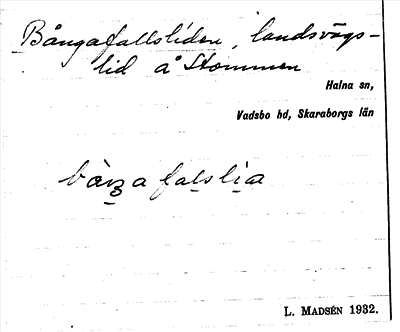 Bångafallsliden, landsvägs-
lid å Stommen
Halna sn,
Vadsbo hd, Skaraborgs län
L. MADSÉN 1932.